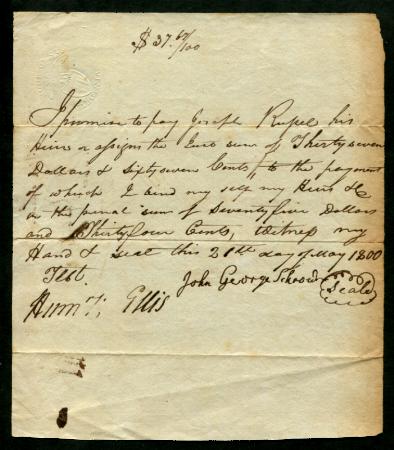 $ 37. 67/100
I promise to pay Joseph Rupel his
Heirs or assigns the Just sum of Thirtyseven
Dollars & Sixtyseven Cents, to the payment
of which I bind my self my Heirs &c
in the penal sum of Seventyfive Dollars
and Thirtyfour Cents, Witness my
Hand & Seal this 21st day of May 1800
Test.
John George Schrowd Seal
Ellis